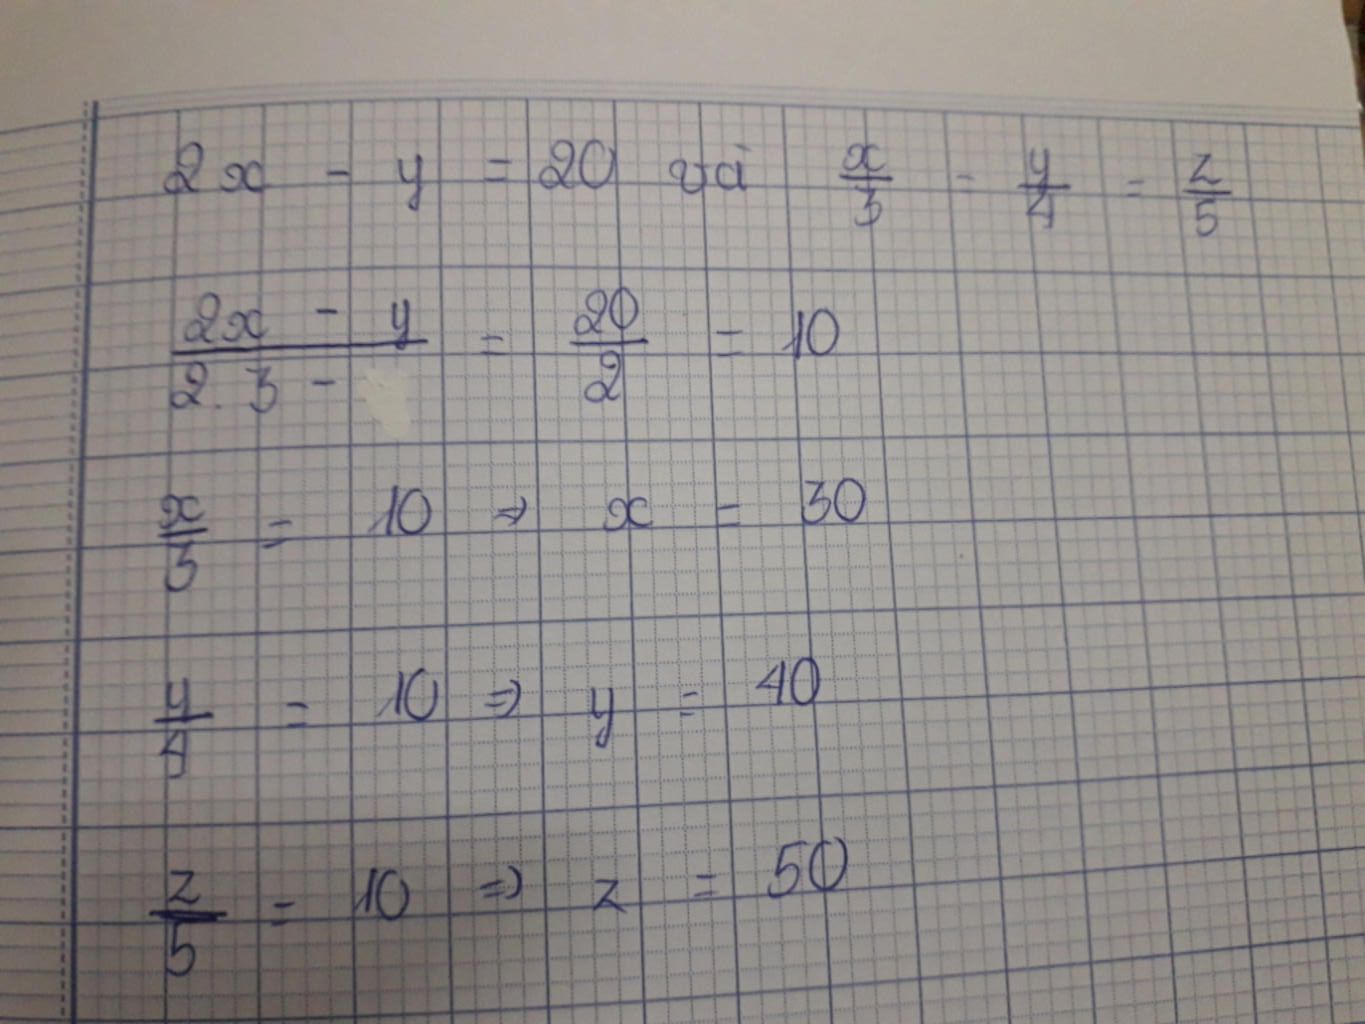 2x - y = 20 và x/3 = y/4 = z/5
(2x - y)/(2.3 - ) = 20/2 = 10
x/3 = 10 => x = 30
y/4 = 10 => y = 40
z/5 = 10 => z = 50